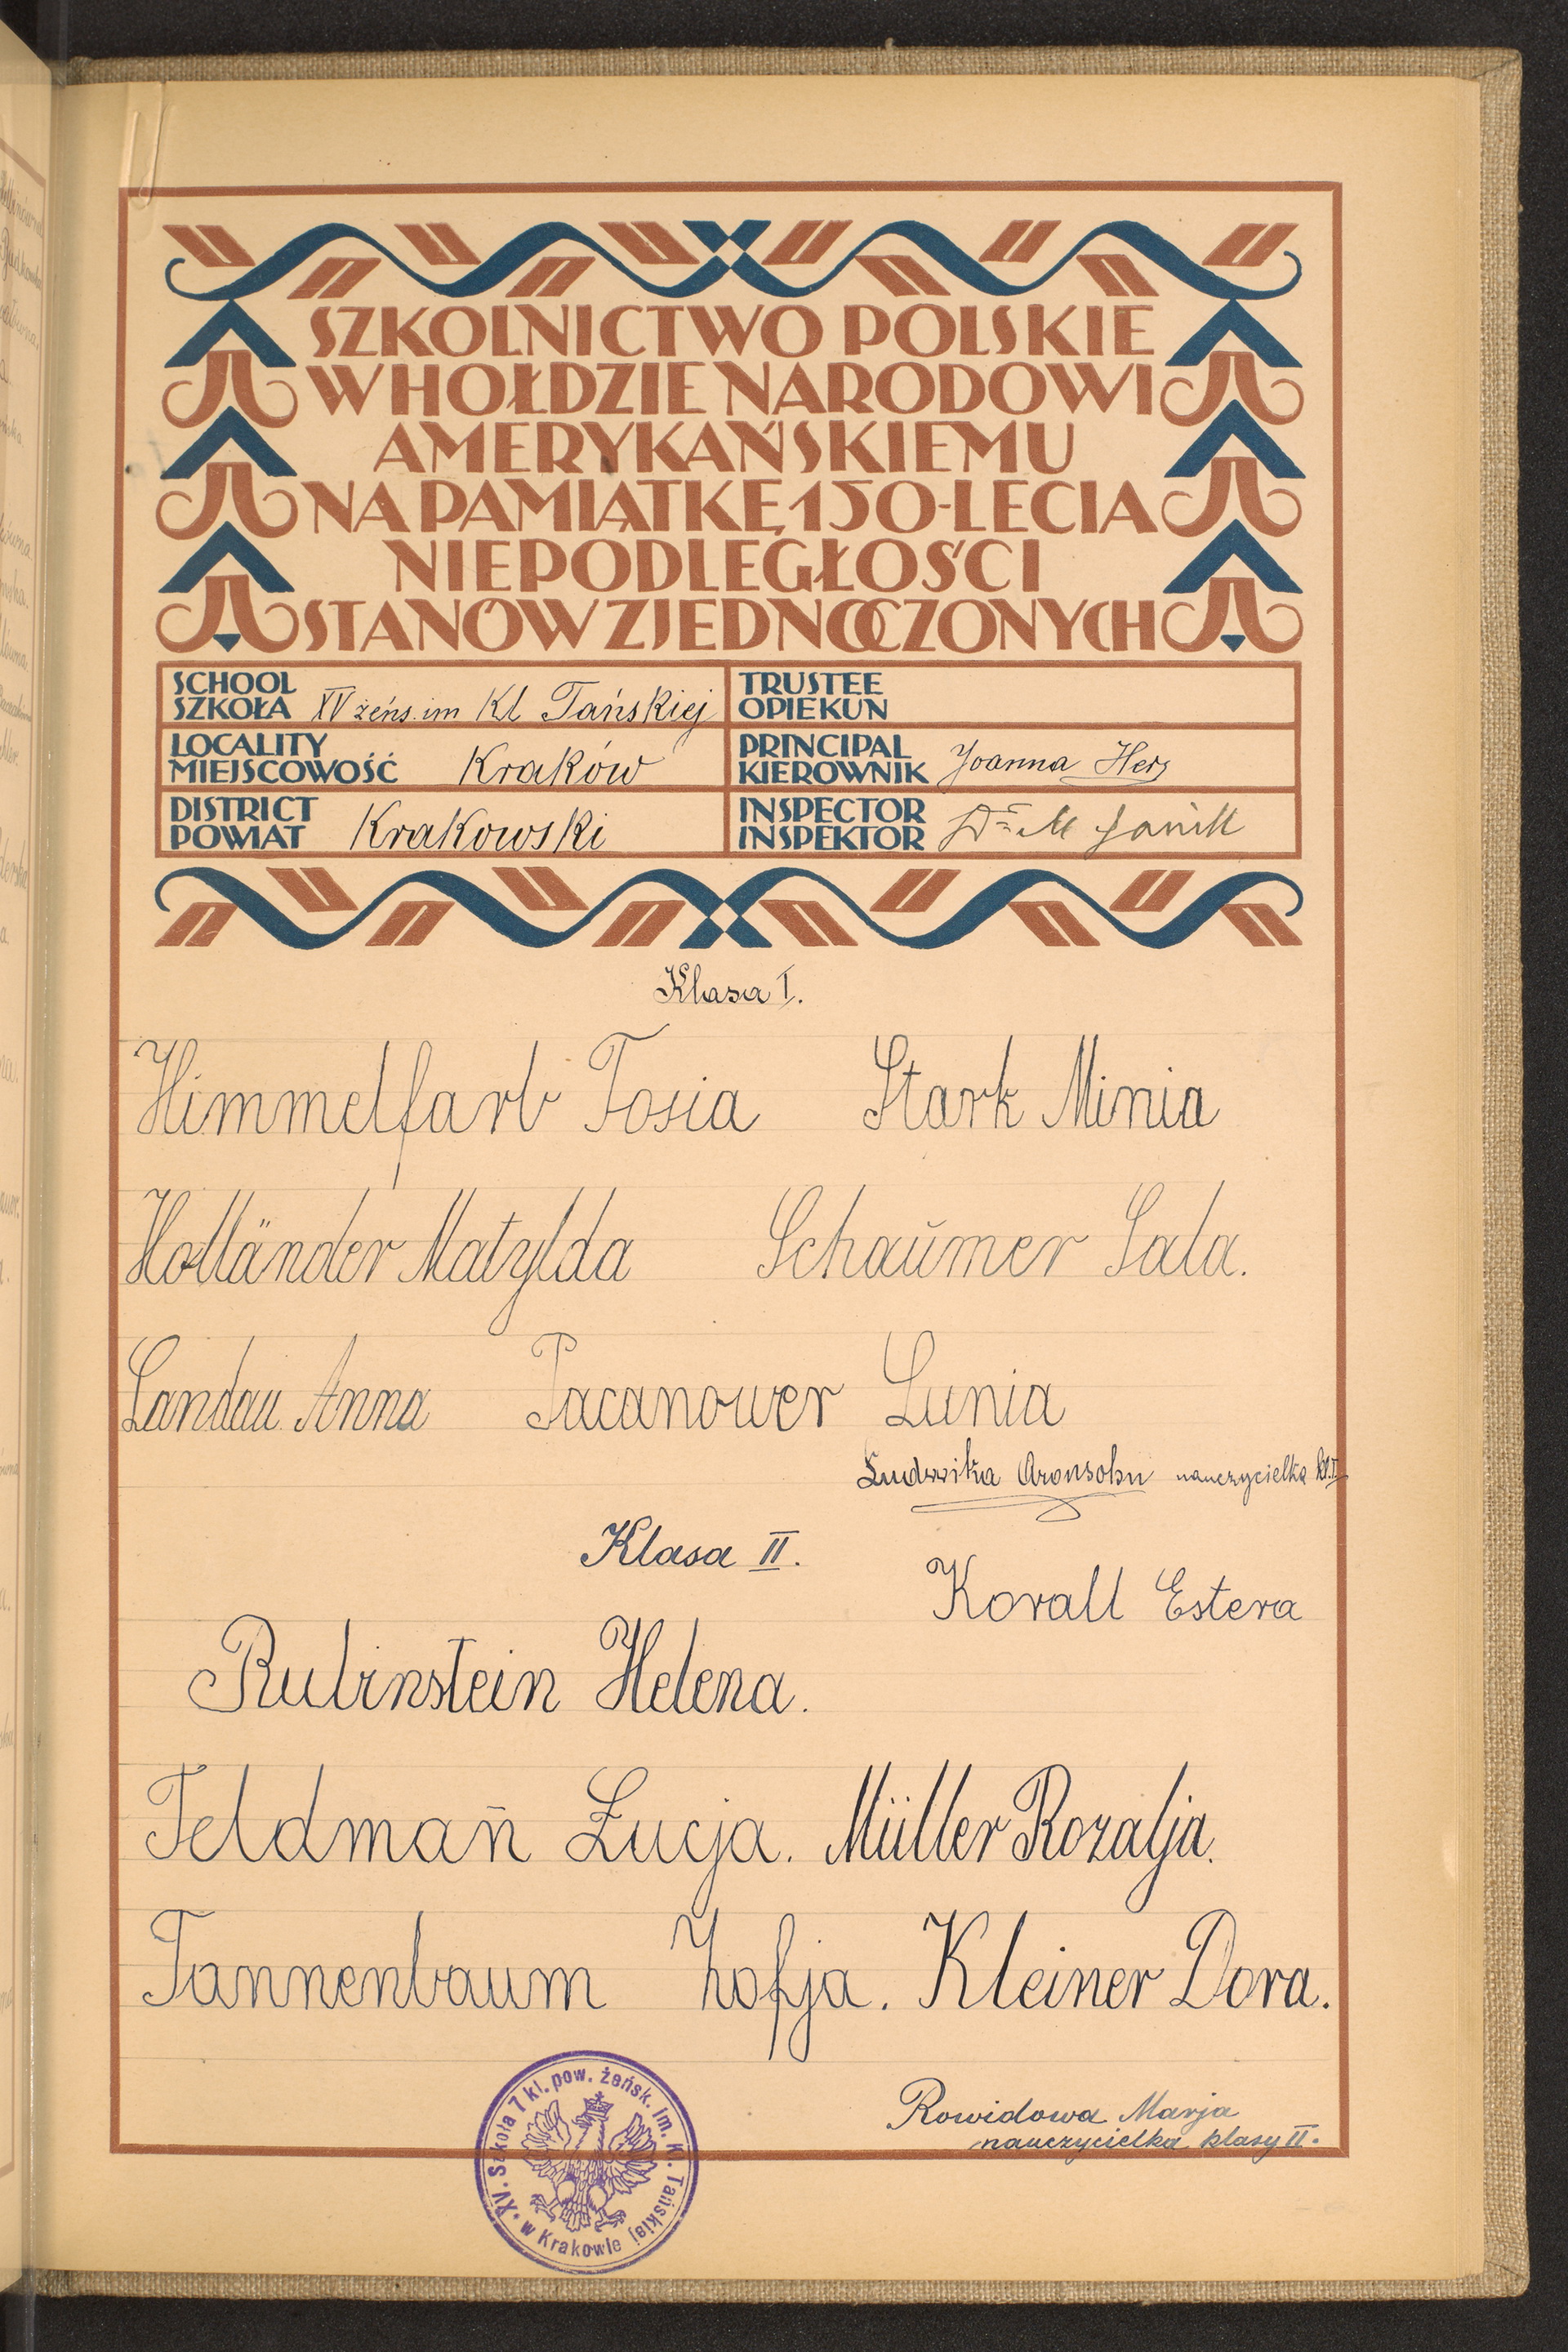 SZKOLNICTWO POLSKIE
W HOŁDZIE NARODOWI
AMERYKAŃSKIEMU
NA PAMIĄTKĘ 150-LECIA
NIEPODLEGŁOŚCI
STANÓW ZJEDNOCZONYCH
SCHOOL
SZKOŁA XV żeńs. im Kl Tańskiej
TRUSTEE
OPIEKUN
LOCALITY
MIEJSCOWOŚĆ Kraków
PRINCIPAL
KIEROWNIK Joanna Herz
DISTRICT
POWIAT Krakowski
INSPECTOR
INSPEKTOR Dr M Janik
Klasa I.
Himmelfarb Tosia Stark Minia
Holländer Matylda Schaŭmer Sala.
Landau Anna Pacanower Lunia
Ludwika Aronsohn nauczycielka kl. I
Klasa II.
Korall Estera
Rubinstein Helena.
Feldmañ Łucja. Müller Rozalja.
Tannenbaum Zofja. Kleiner Dora.
Rowidowa Marja
nauczycielka klasy II.
XV. Szkoła 7 kl. pow. żeńsk. im. Kl. Tańskiej
w Krakowie